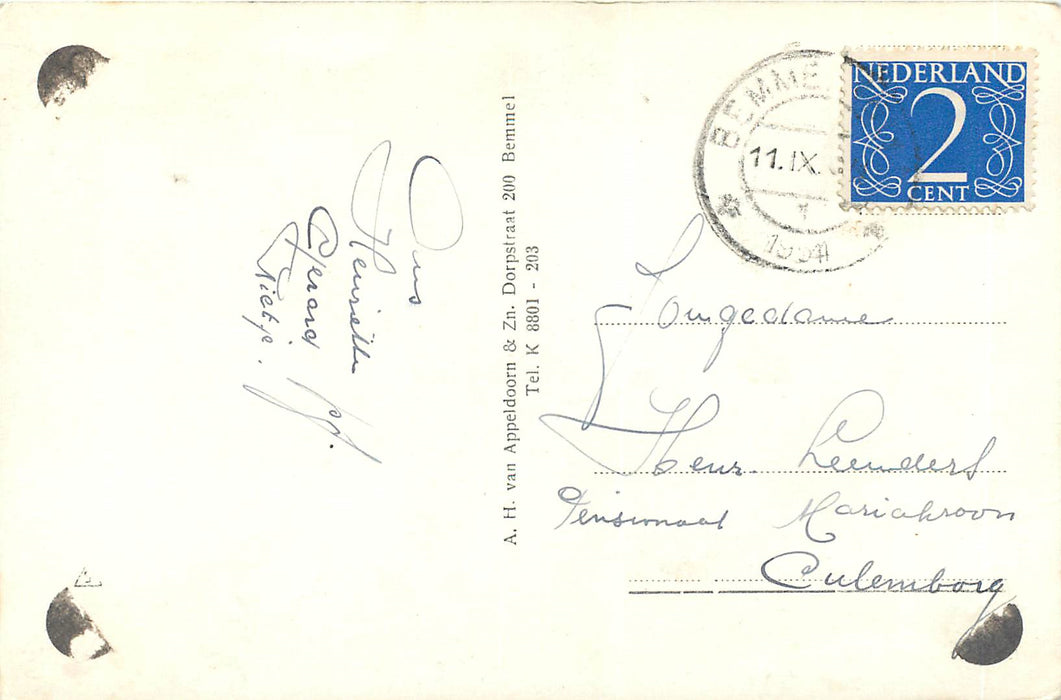 Ons
Henriëtte
Gerard
Nietje.
A. H. van Appeldoorn & Zn. Dorpstraat 200 Bemmel
Tel. K 8801 - 203
BEMME
11.IX.
1
NEDERLAND
2
CENT
Jongedame
Henr. Leenders
Pensionaat Mariakroon
Culemborg